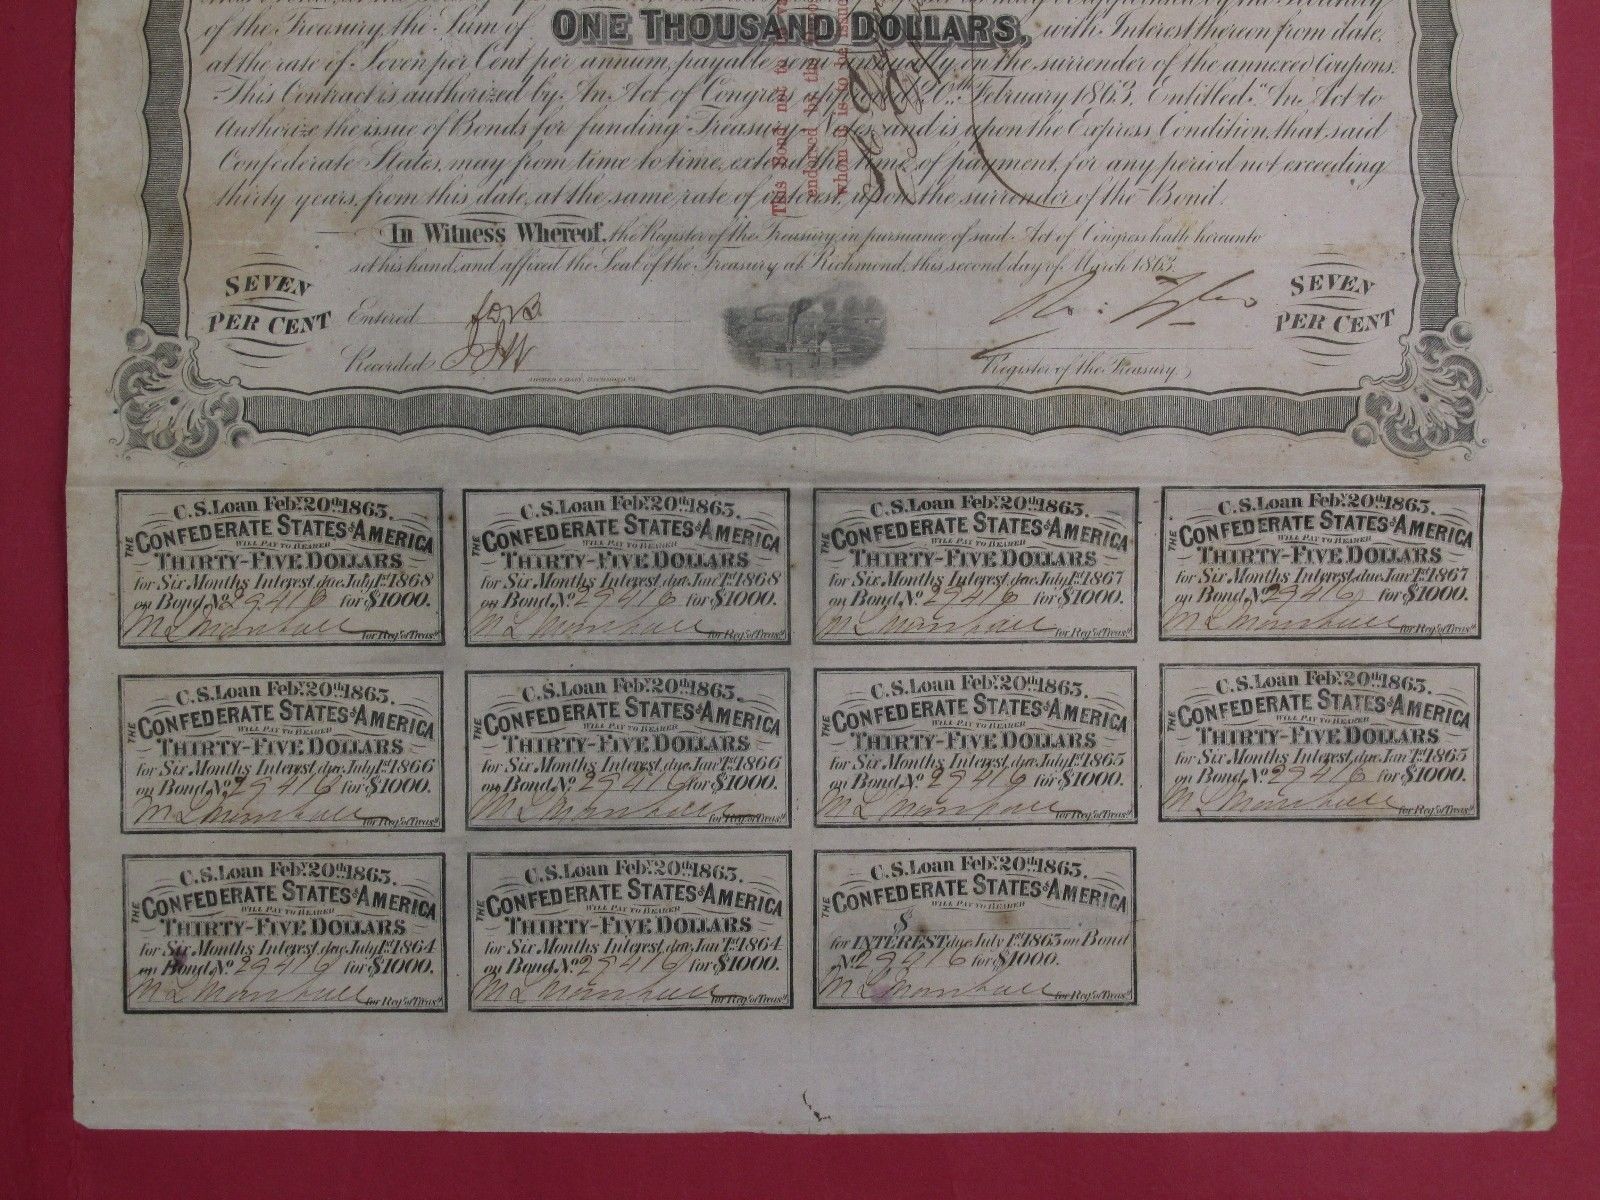 of the Treasury, the Sum of ONE THOUSAND DOLLARS, with Interest thereon from date,
at the rate of Seven per Cent per annum, payable semi annually on the surrender of the annexed Coupons.
This Contract is authorized by An Act of Congress 20th February 1863, Entitled "An Act to
Authorize the issue of Bonds for funding Treasury Notes, and is upon the Express Condition, that said
Confederate States, may from time to time, extend the time of payment, for any period not exceeding
thirty years, from this date, at the same rate of interest, upon the surrender of the Bond.
This Bond not to
endorsed by the
whom it is to be issued
In Witness Whereof, the Register of the Treasury, in pursuance of said Act of Congress hath hereunto
set his hand, and affixed the Seal of the Treasury at Richmond, this second day of March 1863.
SEVEN PER CENT
Entered
Recorded
Register of the Treasury
SEVEN PER CENT
C.S. Loan Feby. 20th 1863.
THE CONFEDERATE STATES OF AMERICA
WILL PAY TO BEARER
THIRTY-FIVE DOLLARS
for Six Months Interest, due July 1st 1868
on Bond, No. 29416 for $1000.
M L Marshall for Reg. of Treasy.
C.S. Loan Feby. 20th 1863.
THE CONFEDERATE STATES OF AMERICA
WILL PAY TO BEARER
THIRTY-FIVE DOLLARS
for Six Months Interest, due Jany. 1st 1868
on Bond, No. 29416 for $1000.
M L Marshall for Reg. of Treasy.
C.S. Loan Feby. 20th 1863.
THE CONFEDERATE STATES OF AMERICA
WILL PAY TO BEARER
THIRTY-FIVE DOLLARS
for Six Months Interest, due July 1st 1867
on Bond, No. 29416 for $1000.
M L Marshall for Reg. of Treasy.
C.S. Loan Feby. 20th 1863.
THE CONFEDERATE STATES OF AMERICA
WILL PAY TO BEARER
THIRTY-FIVE DOLLARS
for Six Months Interest, due Jany. 1st 1867
on Bond, No. 29416 for $1000.
M L Marshall for Reg. of Treasy.
C.S. Loan Feby. 20th 1863.
THE CONFEDERATE STATES OF AMERICA
WILL PAY TO BEARER
THIRTY-FIVE DOLLARS
for Six Months Interest, due July 1st 1866
on Bond, No. 29416 for $1000.
M L Marshall for Reg. of Treasy.
C.S. Loan Feby. 20th 1863.
THE CONFEDERATE STATES OF AMERICA
WILL PAY TO BEARER
THIRTY-FIVE DOLLARS
for Six Months Interest, due Jany. 1st 1866
on Bond, No. 29416 for $1000.
M L Marshall for Reg. of Treasy.
C.S. Loan Feby. 20th 1863.
THE CONFEDERATE STATES OF AMERICA
WILL PAY TO BEARER
THIRTY-FIVE DOLLARS
for Six Months Interest, due July 1st 1865
on Bond, No. 29416 for $1000.
M L Marshall for Reg. of Treasy.
C.S. Loan Feby. 20th 1863.
THE CONFEDERATE STATES OF AMERICA
WILL PAY TO BEARER
THIRTY-FIVE DOLLARS
for Six Months Interest, due Jany. 1st 1865
on Bond, No. 29416 for $1000.
M L Marshall for Reg. of Treasy.
C.S. Loan Feby. 20th 1863.
THE CONFEDERATE STATES OF AMERICA
WILL PAY TO BEARER
THIRTY-FIVE DOLLARS
for Six Months Interest, due July 1st 1864
on Bond, No. 29416 for $1000.
M L Marshall for Reg. of Treasy.
C.S. Loan Feby. 20th 1863.
THE CONFEDERATE STATES OF AMERICA
WILL PAY TO BEARER
THIRTY-FIVE DOLLARS
for Six Months Interest, due Jany. 1st 1864
on Bond, No. 29416 for $1000.
M L Marshall for Reg. of Treasy.
C.S. Loan Feby. 20th 1863.
THE CONFEDERATE STATES OF AMERICA
WILL PAY TO BEARER
$
for INTEREST due July 1st 1863 on Bond
No. 29416 for $1000.
M L Marshall for Reg. of Treasy.